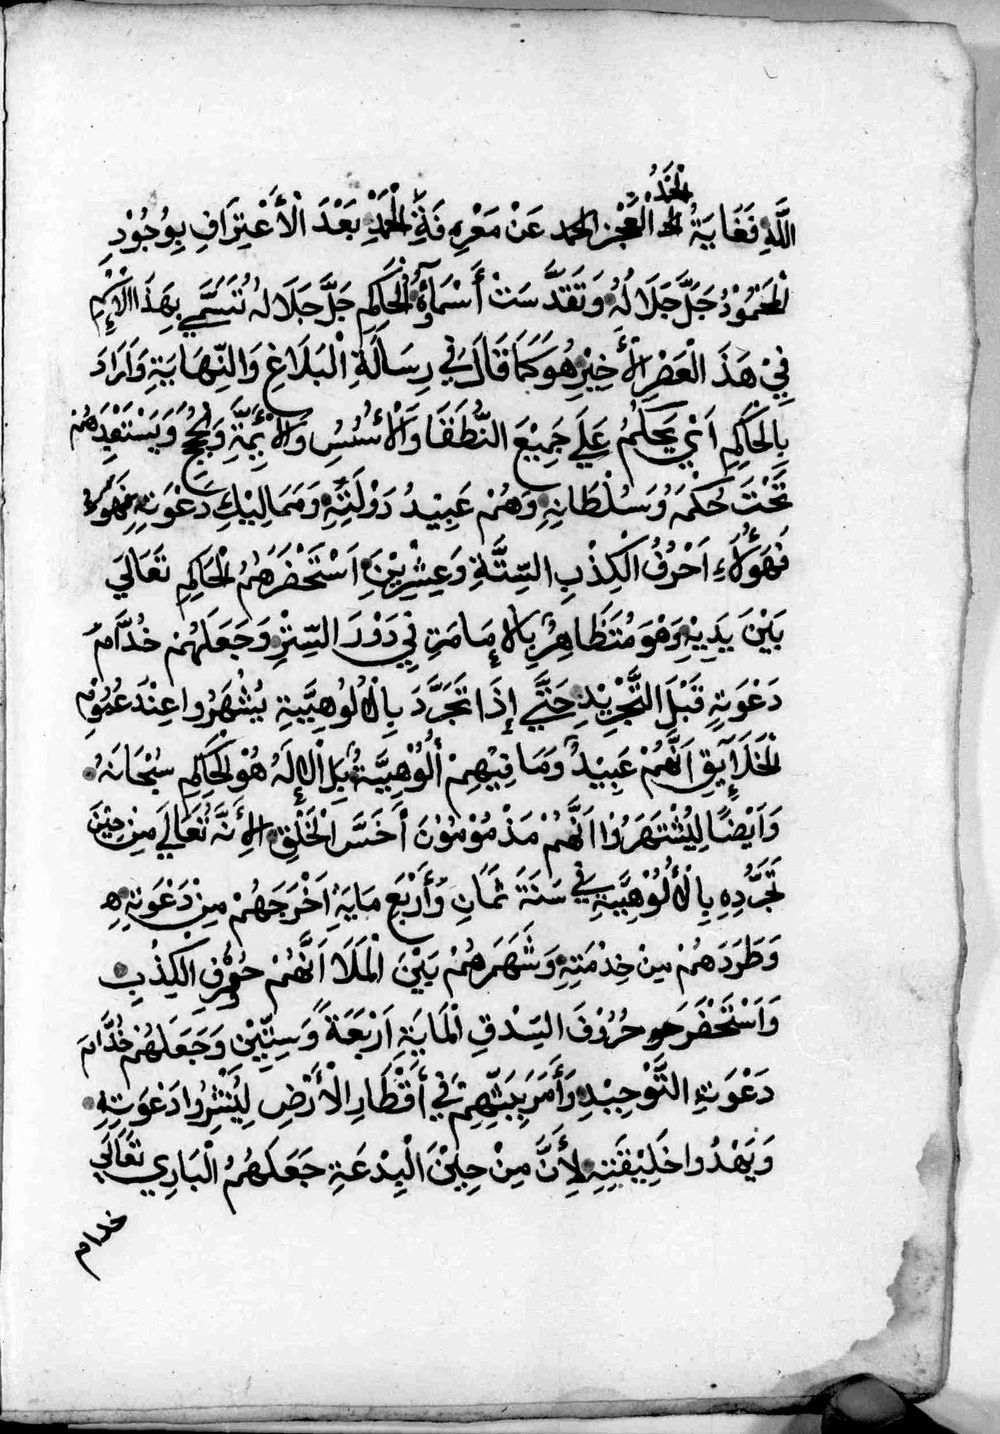 الحَمْدُ
اللَّهِ فَغَايَةُ الحمد الْعَجْز الحمد عَنْ مَعْرِفَةِ الْحَمْدِ بَعْدَ الْأَعْتِرَافِ بِوُجُوْدِ
الْمَحْمُوْدُ جَلَّ جَلَالُهُ وَتَقَدَّسَتْ أَسْمَآؤُهُ الْحَاكِم جَلَّ جَلَالهُ تُسَمَّي بِهَذَا الْإِسْمِ
فِيْ هَذَ الْعَصْرِ الْأَخِيْرِ هُوَ كَمَا قَالَ فِي رِسَالَةِ الْبَلَاغِ وَالنِّهَايَةِ وَارَادَ
بِالْحَاكِمِ اَيْ يَحْكُمُ عَلَي جَمِيْعَ النُّطَقَا وَالْأُسُسِ وَالْأَئِمَّةِ وَالْحُجَجُ وَيَسْتَعْبِدَهُمْ
تَحْتَ حُكْمَهُ وَسُلْطَانِهِ وَهُمْ عَبِيْدُ دَوْلَتِهِ وَمَمَالِيْكِ دَعْوَتِهِ
فَهَؤُلَاءِ اَحْرُفُ الْكِذْبِ السِّتَّةِ وَعِشْرِيْنَ اَسْتَحْضَرَهُمُ الْحَاكِمِ تَعَالَي
بَيْنَ يَدَيْهِ وَهْوَ مُتَظَاهِرُ بِالْإِمَامَةِ فِي دَوْرَ السِّتْرِ وَجَعَلَهُمْ خُدَّامَ
دَعْوَتِهِ قَبْلَ التَّجْرِيْدِ حَتَّي إِذَا تَجَرَّدَ بِالْأُلُوهِيَّةِ يُشْهَرُوا عِنْدَ عُيُوْنِ
الْخَلَآيِقِ اَنَّهُمْ عَبِيْدُ وَمَا فِيْهِمْ أُلُوْهِيَّةُ بَلِ الْإِلَهُ هُوْ الْحَاكِمِ سُبْحَانَهُ
وَاَيْضًا لِيُشْتَهَرُوْا اَنَّهُمْ مَذْمُوْمُوْنَ أَخَسَّ الْخَلْقِ الِأَنَّهُ تُعَالَي مِنْ حِيْنَ
تَجَرُّدِهِ بِالْأُلُوْهِيَّةِ فِي سَنَةَ ثَمَانِ وَأَرْبَعِ مَايَةُ اَخْرَجَهُمْ مِنْ دَعْوَتِهِ
وَطَرَدَهُمْ مِنْ خِدْمَتِهِ وَشَهَرَهُمْ بَيْنَ الْمَلَا اَنَّهُمْ حُرُوْفِ الْكِذْبِ
وَاَسْتَحْضَرَ حُرُوْفَ السِدْقِ الْمَايَةِ اَرْبَعَةً وَسِتِّيْنَ وَجَعَلَهُمْ خُدَّامَ
دَعْوَتِهِ التَّوْحِيْدِ وَأَمَرَ بِبَثِّهِمْ فِي أَقْطَارِ الْأَرْضِ لِيُنْشِرُوا دَعْوَتِهِ
وَيَهْدُوا خَلِيْقَتِهِ لِأَنَّ مِنْ حِيْنَ الْبِدْعَةِ جَعَلَهُمُ الْبَارِي تَعَالَي
خدام